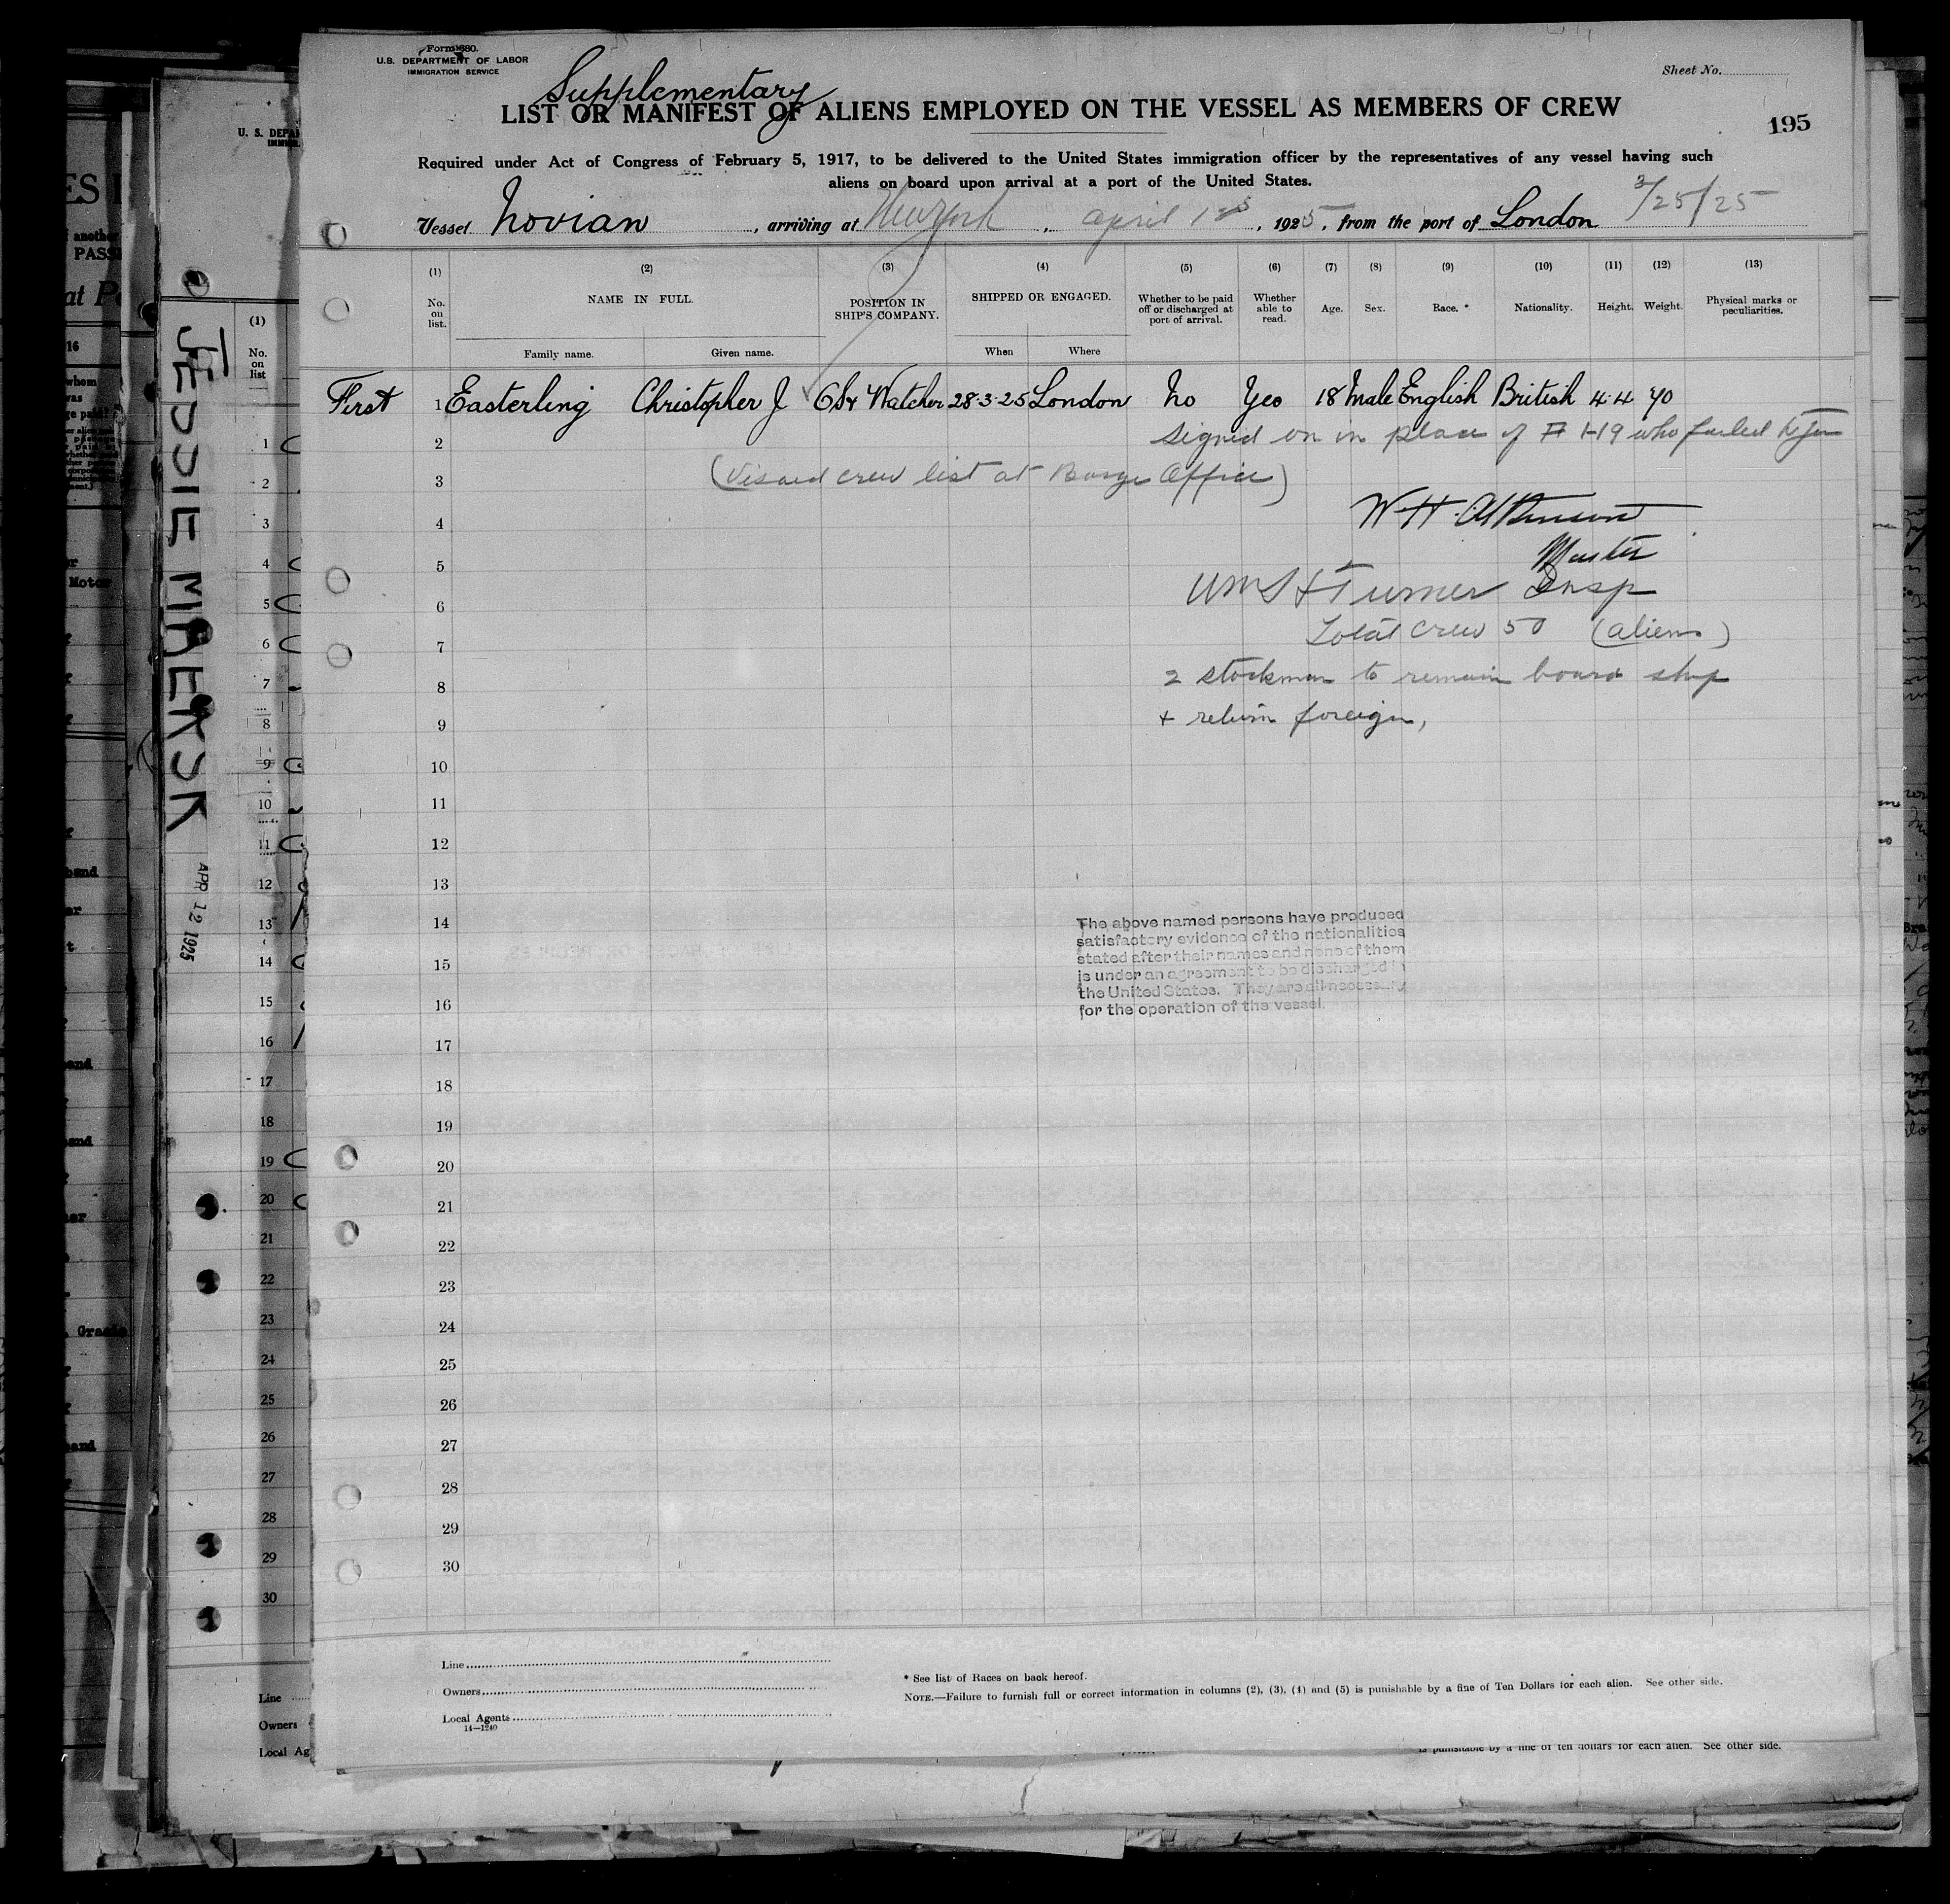 Form 680.
U.S. DEPARTMENT OF LABOR
IMMIGRATION SERVICE
Sheet No.
Supplementary
LIST OR MANIFEST OF ALIENS EMPLOYED ON THE VESSEL AS MEMBERS OF CREW
195
Required under Act of Congress of February 5, 1917, to be delivered to the United States immigration officer by the representatives of any vessel having such
aliens on board upon arrival at a port of the United States.
3/25/25
Vessel Novian, arriving at New York, april, 1925, from the port of London
(1) (2) (3) (4) (5) (6) (7) (8) (9) (10) (11) (12) (13)
No. on list. NAME IN FULL. POSITION IN SHIP'S COMPANY. SHIPPED OR ENGAGED. Whether to be paid off or discharged at port of arrival. Whether able to read. Age. Sex. Race. * Nationality. Height. Weight. Physical marks or peculiarities.
Family name. Given name. When Where
First 1 Easterling Christopher J Watcher 28-3-25 London No Yes 18 Male English British 4-4 90
2 signed on in place of # 1-19 who failed to join
3 (Visaed crew list at Barge Office)
4 W. H. Atkinson
5 Master
6 Wm S H Turner Insp
7 Total crew 50 (aliens)
8 2 stockman to remain board ship
9 + return foreign,
10
11
12
13
14
15
16
17
18
19
20
21
22
23
24
25
26
27
28
29
30
The above named persons have produced
satisfactory evidence of the nationalities
stated after their names and none of them
is under an agreement to be discharged in
the United States. They are all necessary
for the operation of the vessel.
Line
Owners
Local Agents
14—1240
* See list of Races on back hereof.
NOTE.—Failure to furnish full or correct information in columns (2), (3), (4) and (5) is punishable by a fine of Ten Dollars for each alien. See other side.
is punishable by a fine of ten dollars for each alien. See other side.
JESSIE MAERSK
APR 12 1925
(1)
No. on list
1
2
3
4
5
6
7
8
9
10
11
12
13
14
15
16
17
18
19
20
21
22
23
24
25
26
27
28
29
30
Line
Owners
Local Ag